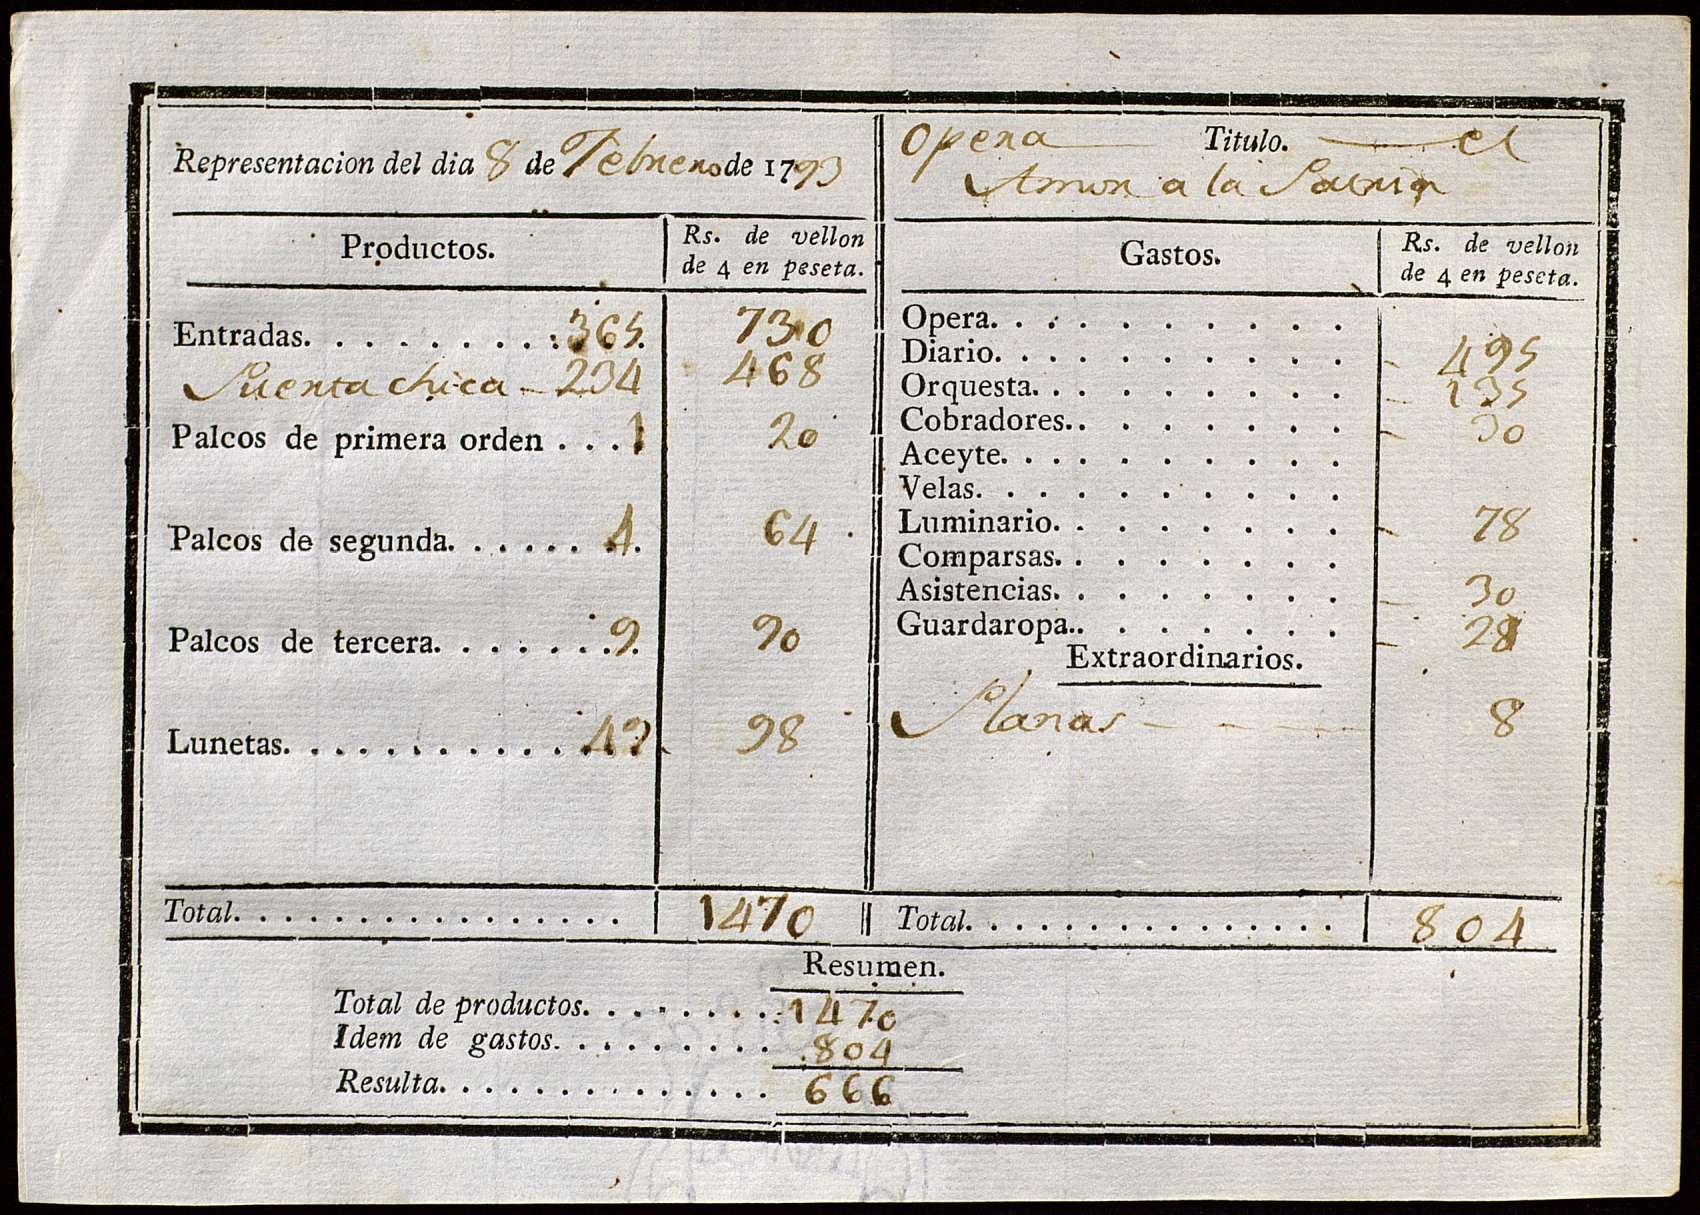 Representacion del dia 8 de Febrero de 1793
Productos.
Rs. de vellon
de 4 en peseta.
Entradas. 365. 730
Puerta chica - 234 468
Palcos de primera orden . . . 1 20
Palcos de segunda. 4. 64
Palcos de tercera. 9. 90
Lunetas. 49 98
Total. 1470
Opera Titulo. el
Amor a la Patria
Gastos.
Rs. de vellon
de 4 en peseta.
Opera.
Diario. 495
Orquesta. 135
Cobradores.. 30
Aceyte.
Velas.
Luminario. 78
Comparsas.
Asistencias. 30
Guardaropa.. 28
Extraordinarios.
Planas 8
Total. 804
Resumen.
Total de productos. 1470
Idem de gastos. 804
Resulta. 666